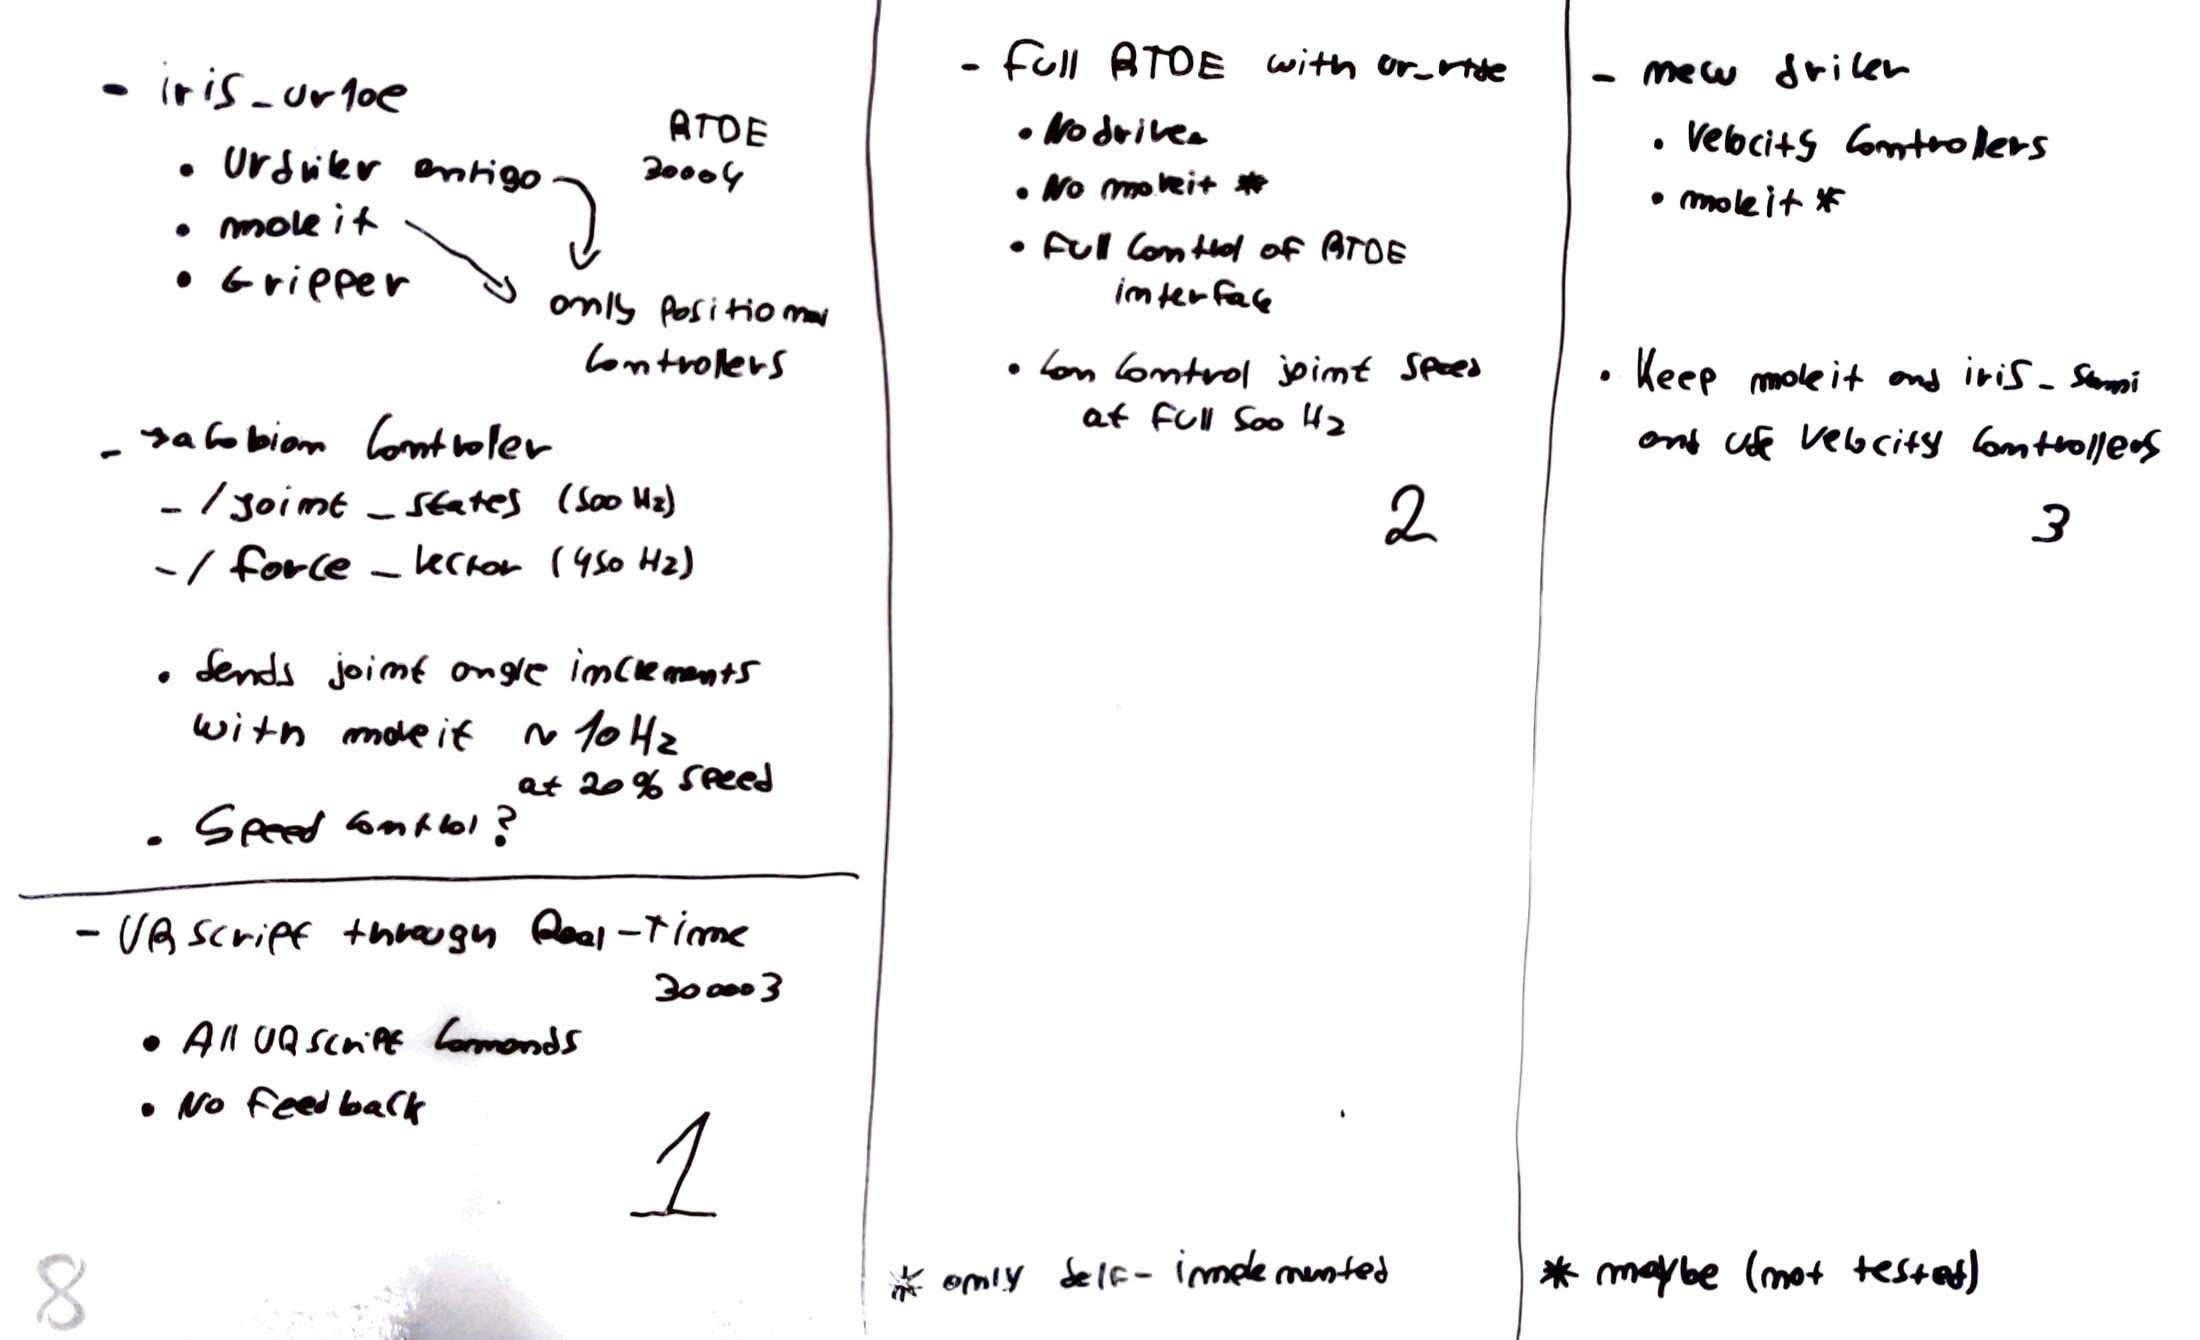 - iris_ur10e
RTDE
30004
• Urdriver antigo
• moveit
• Gripper
only positional
controllers
- Jacobian Controler
- /joint_states (500 Hz)
- / force_vector (450 Hz)
• Sends joint angle increments
with moveit ~ 10 Hz
at 20% speed
• Speed control?
- URscript through Real-Time
300003
• All URscript Commands
• No Feedback
1
8
- Full RTDE with ur_rtde
• No driver
• No moveit *
• Full Control of RTDE
interface
• Can Control joint speed
at full 500 Hz
2
* only self-implemented
- new driver
• Velocity Controllers
• moveit *
• Keep moveit and iris_sami
and use Velocity Controllers
3
* maybe (not tested)